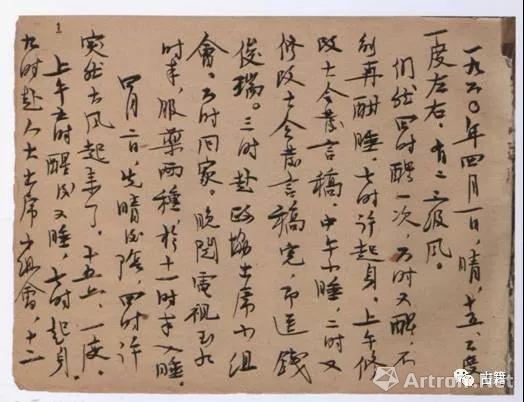 1
一九六〇年四月一日,晴,十五、六度
一度左右,有二三级风。
仍然四时醒一次,六时又醒,不
刻再酣睡,七时许起身。上午修
改大会发言稿。中午小睡,二时又
修改大会发言稿完而送钱
俊瑞。三时赴政协出席小组
会。六时回家。晚阅电视至九
时半,服药两种於十一时半入睡。
四月二日,先晴后阴,四时许
突然大风起来了。十五上、一度。
上午五时醒后又睡,七时起身。
九时赴人大出席小组会,十二
古籍
Artron.Net